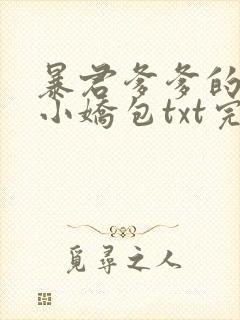 暴君爹爹的
小嬌包txt完
覓尋之人